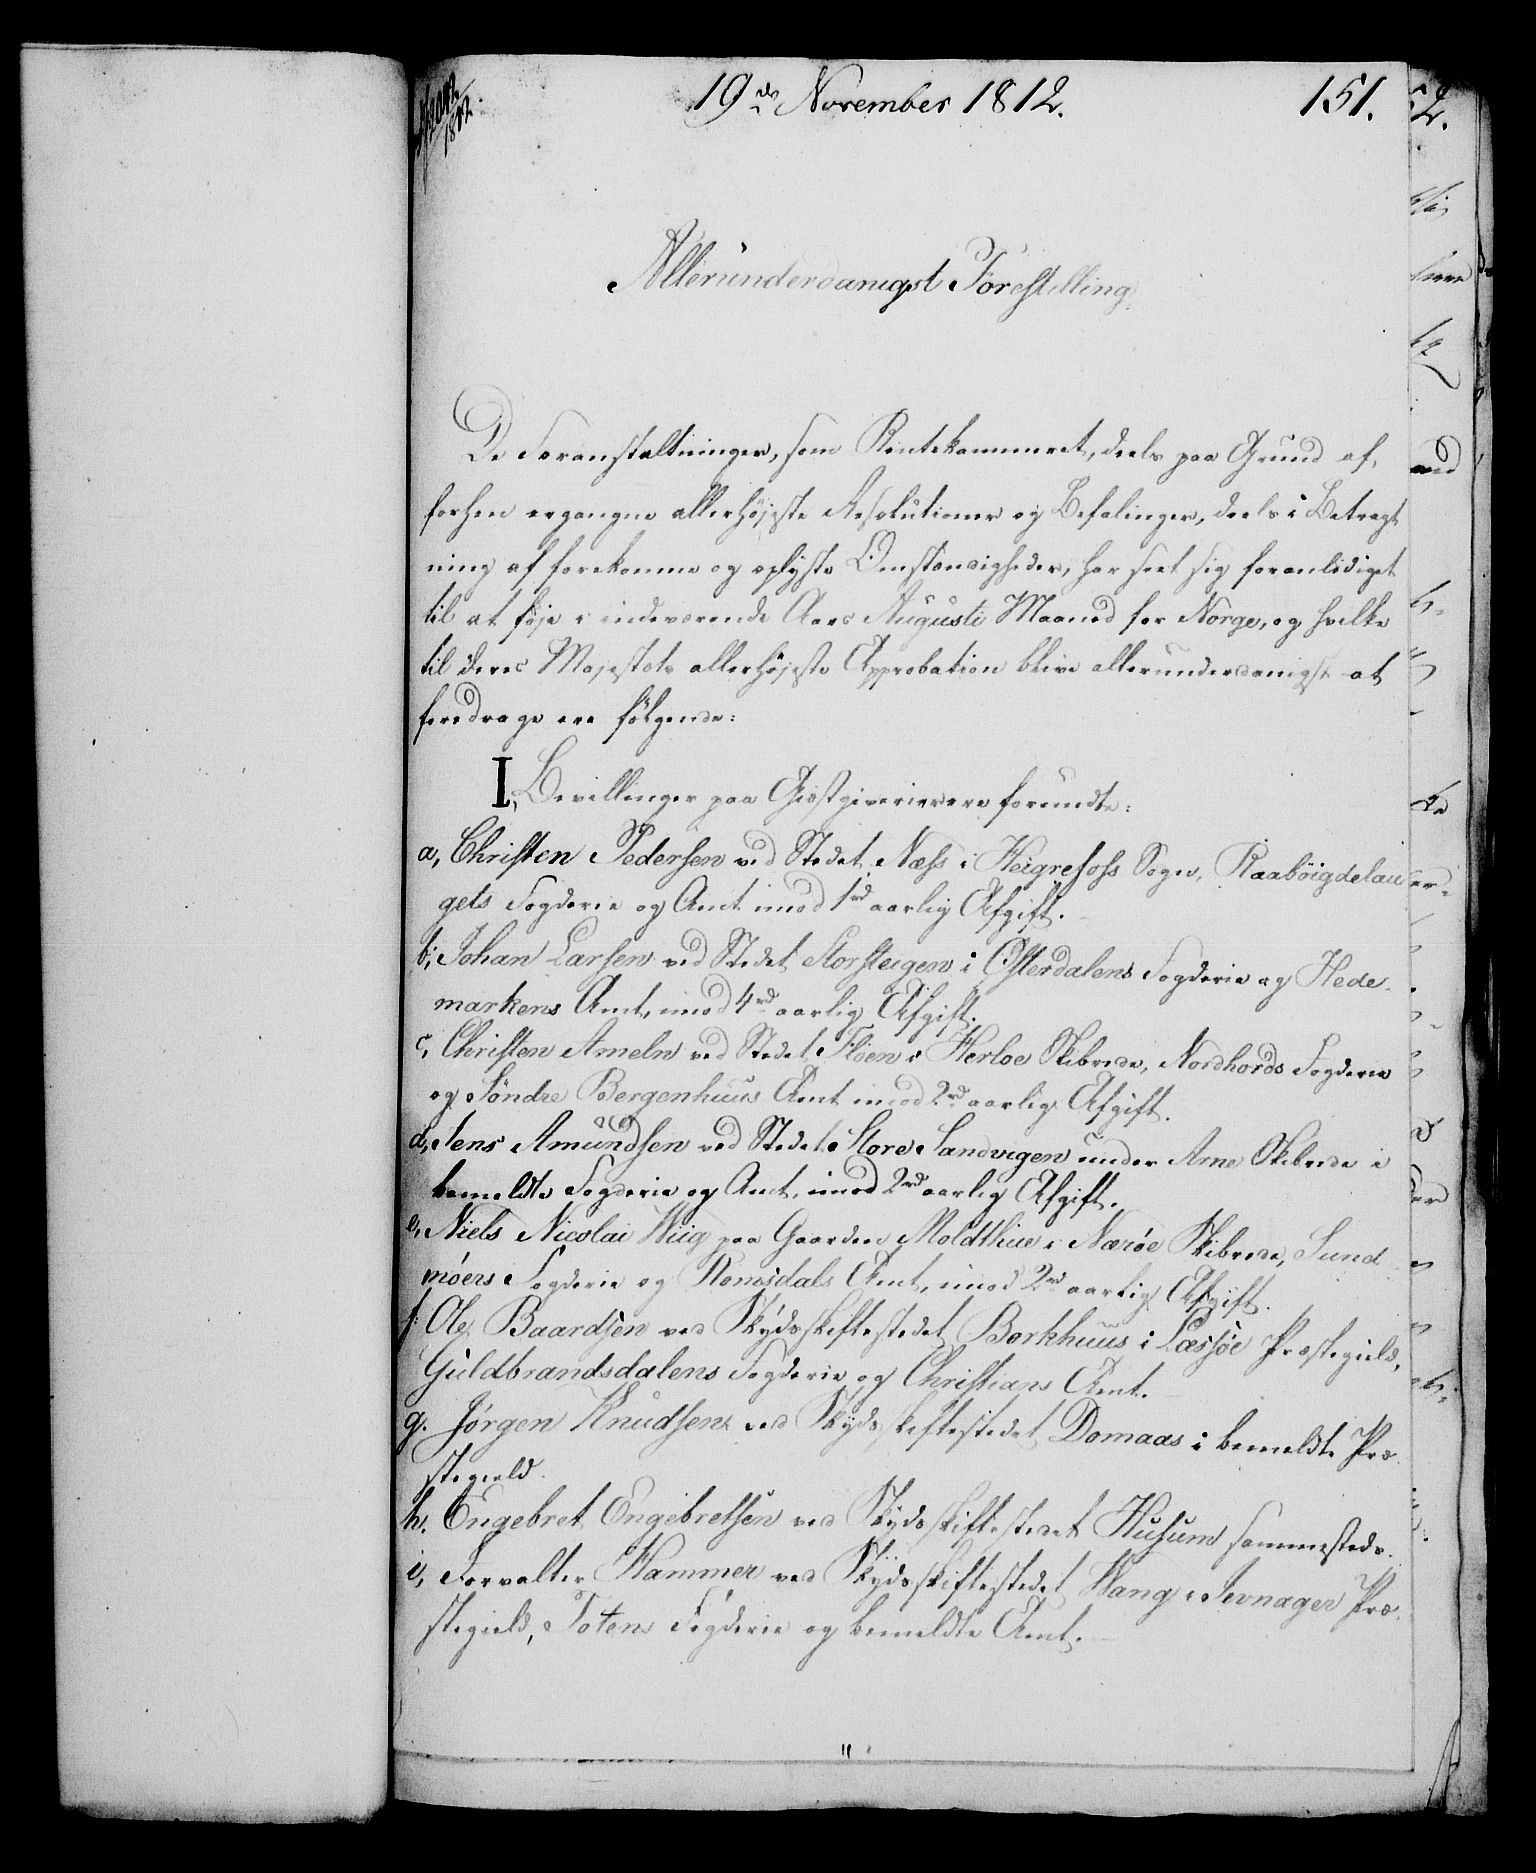 19de November 1812. 151.
Allerunderdanigst Forestilling
De Foranstaltninger, som Rentekammeret, deels paa Grund af,
forhen ergangne allerhöjeste Resolutioner og Befalinger, deels i Betragt
ning af forekomne og oplyste Omstændigheder, har seet sig foranlediget
til at föje i indeværende Aars Augusti Maaned for Norge, og hvilke
til Deres Majestæts allerhöjeste Approbation blive allerunderdanigst at
foredrage ere fölgende:
I, Bevillinger paa Giæstgiverier ere forundte:
a, Christen Pedersen ved Stedet Næss i Heigrefoss Sogn, Raaböigdelau
gets Fogderie og Amt imod 1rd aarlig Afgift.
b, Johan Larsen ved Stedet Storsteigen i Österdalens Fogderie og Hede-
markens Amt, imod 4rd aarlig Afgift.
c, Christen Ameln ved Stedet Flöen i Herloe Skibrede, Nordhords Fogderie
og Söndre Bergenhuus Amt imod 2rd aarlig Afgift.
d, Jens Amundsen ved Stedet Store Sandvigen under Arne Skibrede i
bemeldte Fogderie og Amt, imod 2rd aarlig Afgift.
e, Niels Nicolai Wiig paa Gaarden Moldthue i Næröe Skibrede, Sund
möers Fogderie og Romsdals Amt, imod 2rd aarlig Afgift.
f: Ole Baardsen ved Skydsskiftestedet Borkhuus i Læssöe Præstegield,
Guldbrandsdalens Fogderie og Christians Amt.
g. Jörgen Knudsen ved Skydsskiftestedet Domaas i bemeldte Præ
stegield.
h. Engebret Engebretsen ved Skydsskiftestedet Husum sammesteds.
i, Forvalter Hammer ved Skydsskiftestedet Wang i Jevnager Præ
stegield, Totens Fogderie og bemeldte Amt.